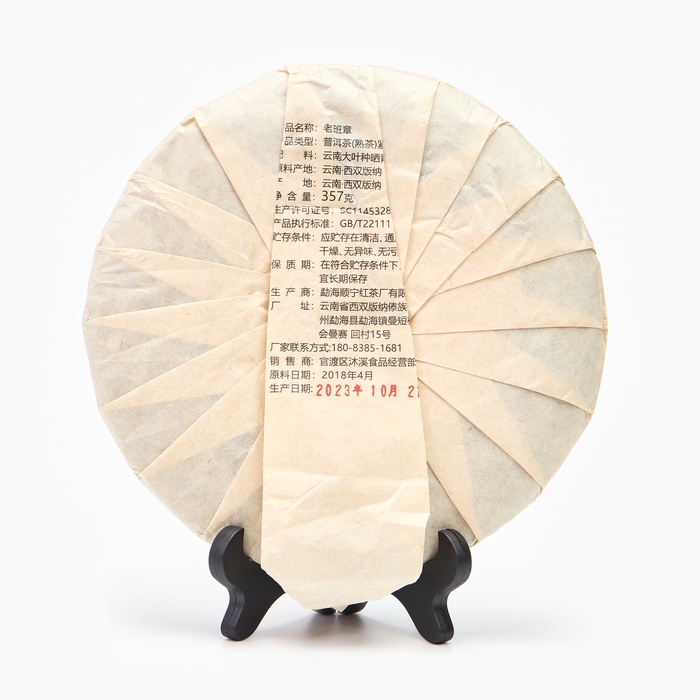 品名称：老班章
产品类型：普洱茶(熟茶)
料：云南大叶种晒
原料产地：云南·西双版纳
产 地：云南·西双版纳
净 含 量：357克
生产许可证号：SC1145328
产品执行标准：GB/T22111
贮存条件：应贮存在清洁、通
干燥、无异味、无污
保 质 期：在符合贮存条件下
宜长期保存
生 产 商：勐海顺宁红茶厂有限
厂 址：云南省西双版纳傣族
州勐海县勐海镇曼短
会曼赛 回村15号
厂家联系方式:180-8385-1681
销 售 商：官渡区沐溪食品经营部
原料日期：2018年4月
生产日期:2023年 10月 2